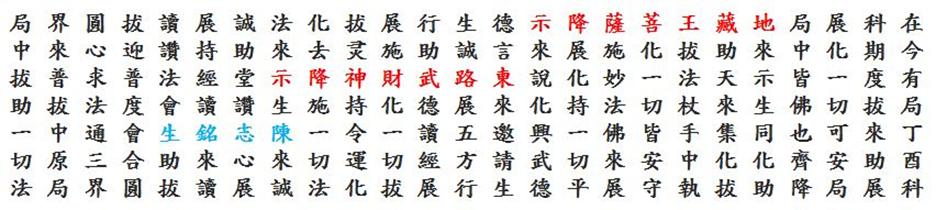 在今有局丁酉科
科期度拔來助展
展化一切可安局
局中皆佛也齊降
地來示生同化助
藏助天來集化拔
王拔法杖手中執
菩化一切皆安守
薩施妙法佛來展
降展化持一切平
示來說化興武德
德言東來邀請生
生誠路展五方行
行助武德讀經展
展施財化一切拔
拔神持令運化
化去降施一切法
法來示生陳來誠
誠助堂讚志心展
展持經讀銘來讀
讀讚法會生助拔
拔迎普度會合圓
圓心求法通三界
界來普拔中原局
局中拔助一切法